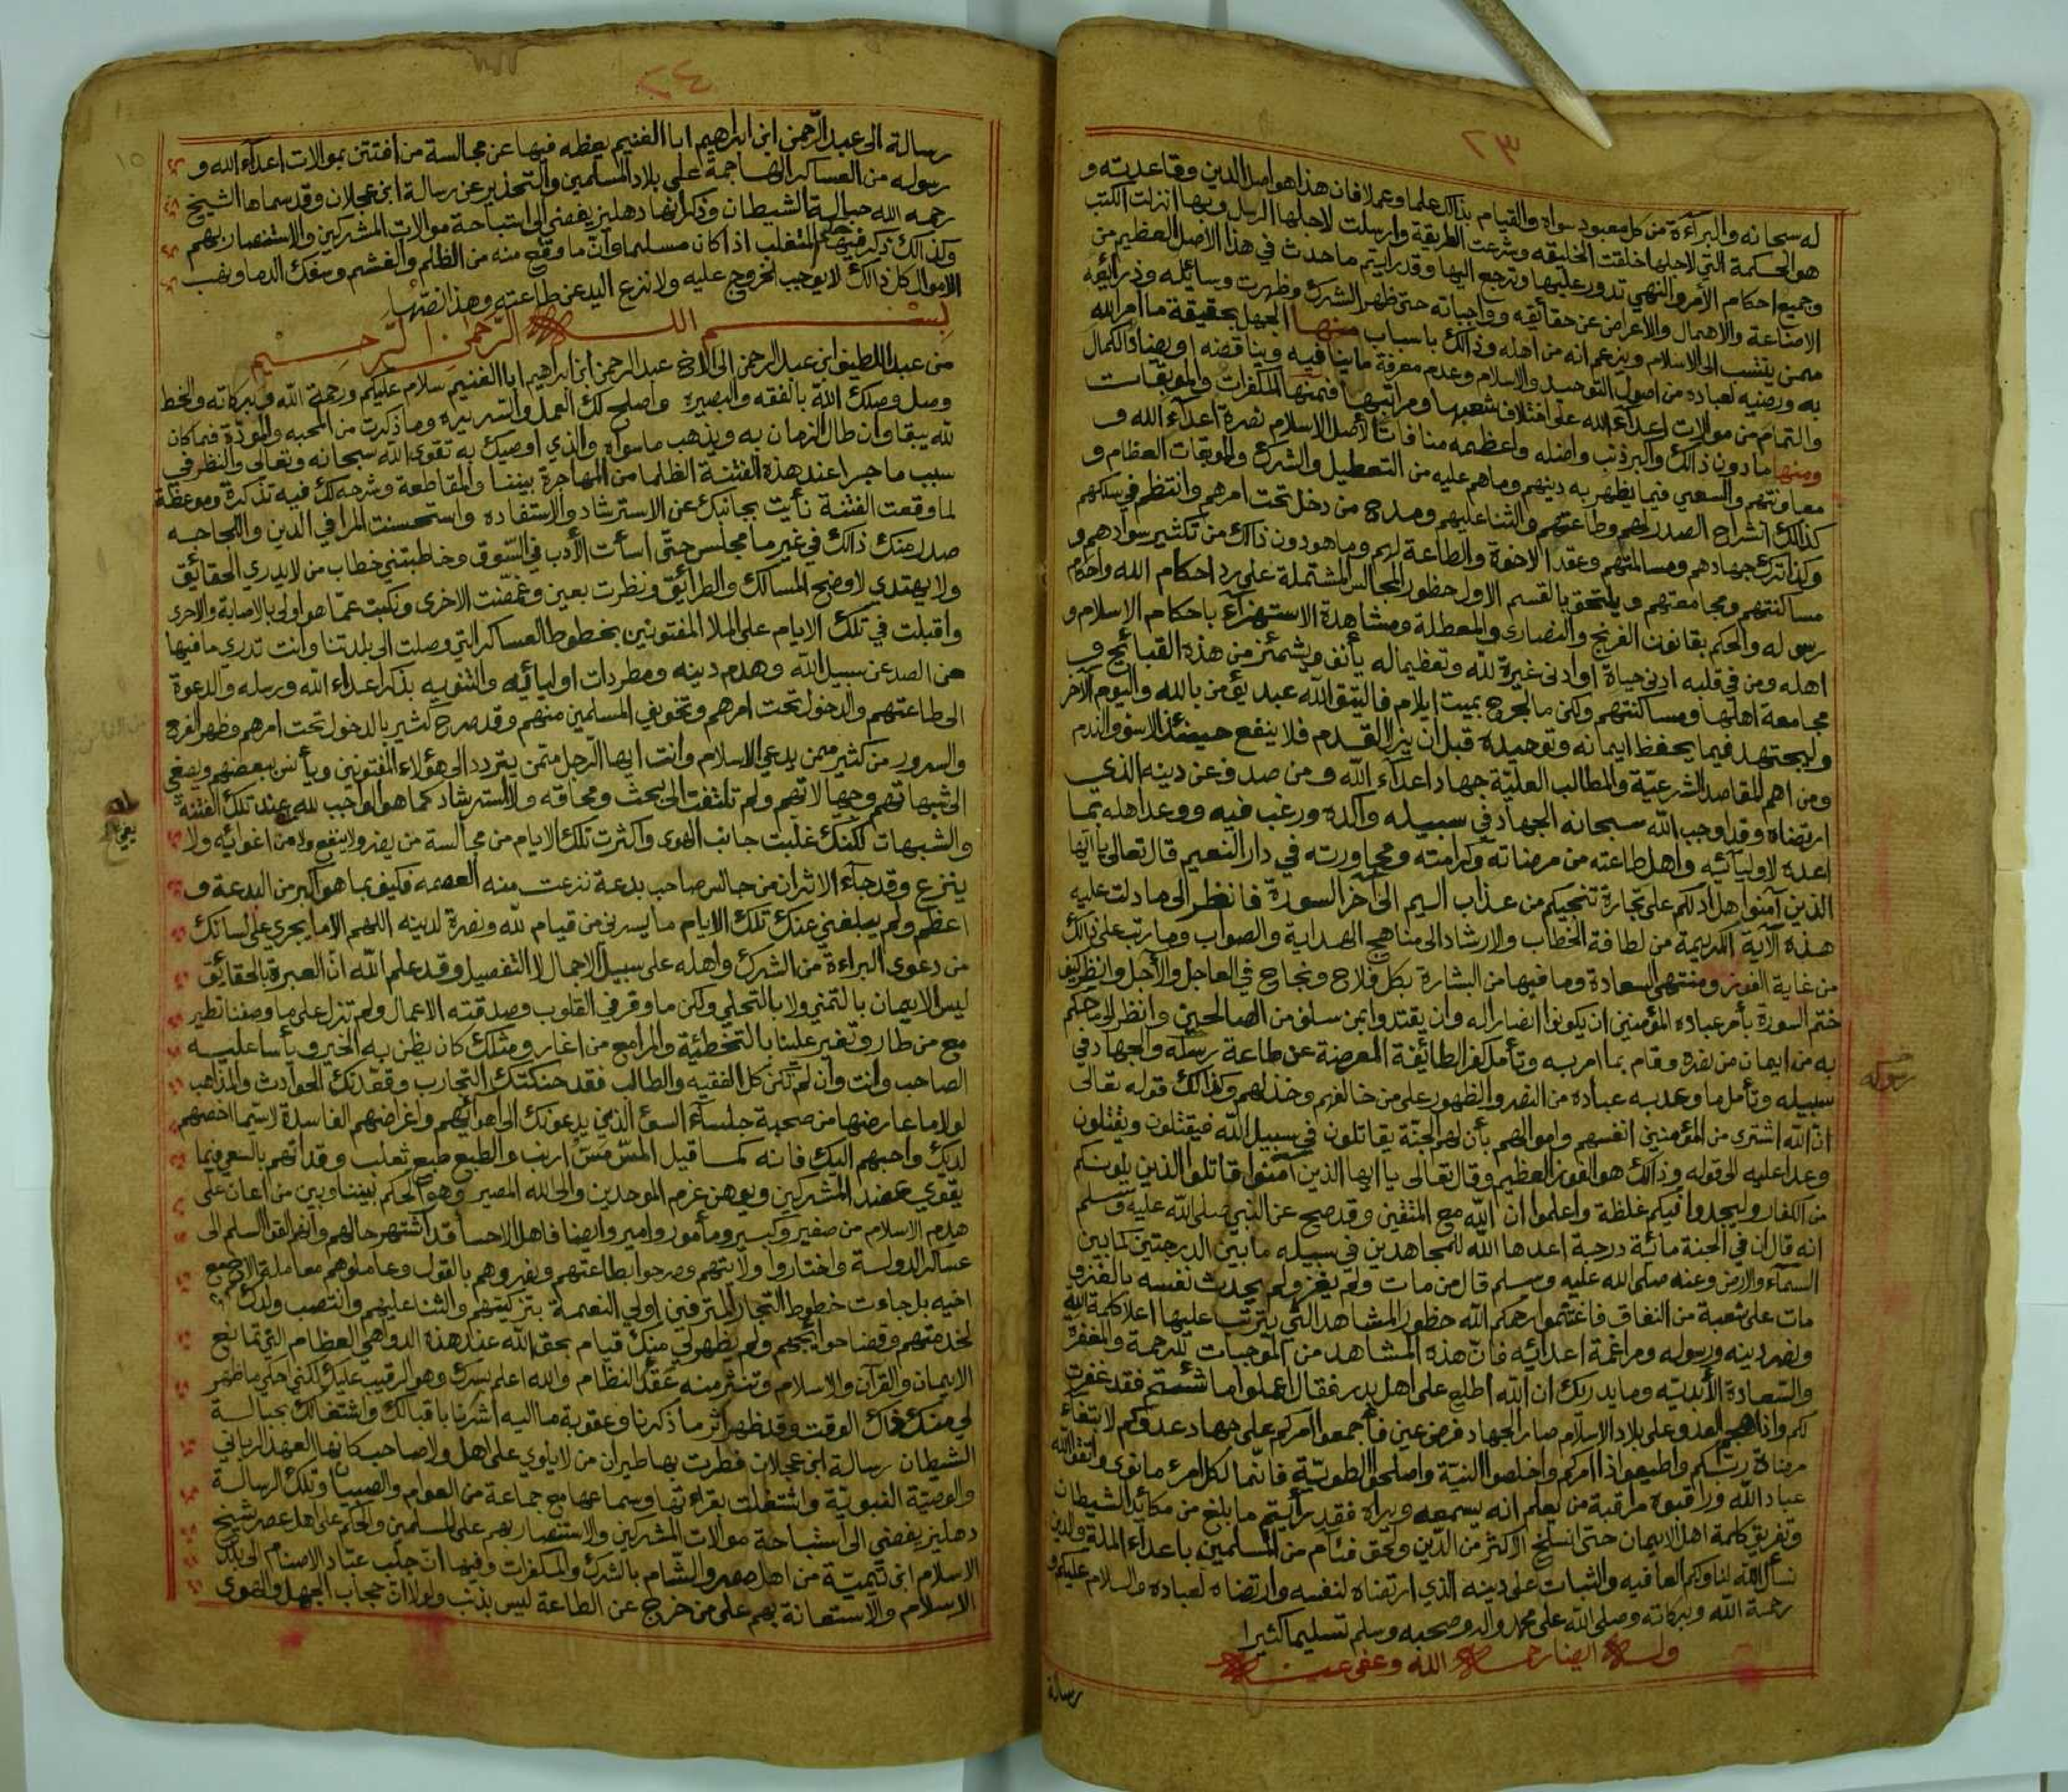 ٢٣
له سبحانه والبرآءة من كل معبود سواه والقيام بذالك علما وعملا فان هذا هو اصل الدين وقاعدته و
هو الحكمة التي لاجلها خلقت الخليقه وشرعت الطريقة وارسلت لاجلها الرسل وبها انزلت الكتب
وجميع احكام الأمر والنهي تدور عليها وترجع اليها وقد رايتم ما حدث في هذا الاصل العظيم من
الاضاعة والاهمال والاعراض عن حقائقه وواجباته حتى ظهر الشرك وظهرت وسائله وذرائعه
ممن ينتسب الى الاسلام ويزعم انه من اهله وذالك باسباب منها الجهل بحقيقة ما امر الله
به ورضيه لعباده من اصول التوحيد والاسلام وعدم معرفة ما ينافيه ويناقضه او يضاد الكمال
والتمام من موالات اعدآء الله على اختلاف شعبها ومراتبها فمنها المكفرات والموبقات
ومنها ما دون ذالك واكبر ذنب واضله واعظمه منافات لأصل الاسلام نصرة اعدآء الله و
معاونتهم والسعي فيما يظهر به دينهم وما هم عليه من التعطيل والشرك والموبقات العظام و
كذالك انشراح الصدر لهم وطاعتهم والثنا عليهم ومدح من دخل تحت امرهم وانتظم في سلكهم
وكذا ترك جهادهم ومسالمتهم وعقد الاخوة والطاعة لهم وما هو دون ذالك من تكثير سوادهم و
مساكنتهم ومجامعتهم ويلتحق بالقسم الاول حظور المجالس المشتملة على رد احكام الله واحكام
رسوله والحكم بقانون الفرنج والنصارى والمعطلة ومشاهدة الاستهزآء باحكام الاسلام و
اهله ومن في قلبه ادنى حياة او ادنى غيرة لله وتعظيما له يأنف ويشمئز من هذه القبائح و
مجامعة اهلها ومساكنتهم ولكن ما لجرح بميت ايلام فاليتق الله عبد يؤمن بالله واليوم الآخر
وليجتهد فيما يحفظ ايمانه وتوحيده قبل ان يزل القدم فلا ينفع حينئذ الاسف والندم
ومن اهم المقاصد الشرعيّة والمطالب العليّة جهاد اعدآء الله و من صدف عن دينه الذي
ارتضاه وقد اوجب الله سبحانه الجهاد في سبيله واكده ورغب فيه ووعد اهله بما
اعده لاوليآئه واهل طاعته من مرضاته وكرامته ومجاورته في دار النعيم قال تعالى يا ايها
الذين آمنوا هل ادلكم على تجارة تنجيكم من عذاب اليم الى آخر السورة فانظر الى ما دلت عليه
هذه الآية الكريمة من لطافة الخطاب والارشاد الى مناهج الهداية والصواب وما رتب على ذالك
من غاية الفوز ومنتهى السعادة وما فيها من البشارة بكل فلاح ونجاح في العاجل والآجل وانظر كيف
ختم السورة بأمر عباده المؤمنين ان يكونوا انصارا له وان يقتدوا بمن سلف من الصالحين وانظر لما حكم
به من ايمان من نصره وقام بما امر به وتأمل كفر الطائفة المعرضة عن طاعة رسله والجهاد في
سبيله وتأمل ما وعد به عباده من النصر والظهور على من خالفهم وخذلهم وكذالك قوله تعالى
انّ الله اشترى من المؤمنين انفسهم واموالهم بأن لهم الجنّة يقاتلون في سبيل الله فيقتلون ويقتلون
وعدا عليه الى قوله وذالك هو الفوز العظيم وقال تعالى يا ايها الذين آمنوا قاتلوا الذين يلونكم
من الكفار وليجدوا فيكم غلظة واعلموا ان الله مع المتقين وقد صح عن النبي صلى الله عليه وسلم
انه قال ان في الجنة مائة درجة اعدها الله للمجاهدين في سبيله ما بين الدرجتين كما بين
السمآء والارض وعنه صلى الله عليه وسلم قال من مات ولم يغز ولم يحدث نفسه بالغزو
مات على شعبة من النفاق فاغتنموا رحمكم الله حظور المشاهد التي يترتب عليها اعلا كلمة الله
ونصر دينه ورسوله ومراغمة اعدائه فانّ هذه المشاهد من الموجبات للرحمة والمغفرة
والسّعادة الأبديّه وما يدريك ان الله اطلع على اهل بدر فقال اعملوا ما شئتم فقد غفرت
لكم واذا هجم العدو على بلاد الاسلام صار الجهاد فرض عين فأجمعوا امركم على جهاد عدوكم لابتغاء
مرضاة ربّكم واطيعوا اذا امركم واخلصوا النيّة واصلحوا الطويّة فانّما لكل امرء ما نوى واتقوا الله
عباد الله وراقبوه مراقبة من يعلم انه يسمعه ويراه فقد رأيتم ما بلغ من مكائد الشيطان
وتفريق كلمة اهل الايمان حتى انسلخ الاكثر من الدّين ولحق فئام من المسلمين باعداء الملة والدين
نسأل الله لنا ولكم العافيه والثبات على دينه الذي ارتضاه لنفسه وارتضاه لعباده والسلام عليكم و
رحمة الله وبركاته وصلى الله على محمد واله وصحبه وسلم تسليما كثيرا
وله ايضا رحمه الله وعفى عنه
رسالة
رسوله
٢٤
رسالة الى عبد الرّحمن ابن ابراهيم ابا الغنيم يعظه فيها عن مجالسة من افتتن بموالات اعدآء الله و
رسوله من العساكر الهاجمة على بلاد المسلمين والتحذير عن رسالة ابن عجلان وقد سماها الشيخ
رحمه الله حبالة الشيطان وذكر انها دهليز يفضي الى استباحة موالات المشركين والاستنصار بهم
وكذالك ذكر فيها حكم المتغلب اذا كان مسلما وأنّ ما وقع منه من الظلم والغشم وسفك الدما ونهب
الاموال كل ذالك لا يوجب الخروج عليه ولا نزع اليد عن طاعته وهذا نصّها
بسم الله الرّحمن الرّحيم
من عبد اللطيف ابن عبد الرحمن الى الاخ عبد الرحمن ابن ابراهيم ابا الغنيم سلام عليكم ورحمة الله وبركاته والخط
وصل وصلك الله بالفقه والبصيره واصلح لك العمل والسريره وما ذكرت من المحبه والمودّة فما كان
لله يبقا وان طال الزمان به ويذهب ما سواه والذي اوصيك به تقوى الله سبحانه وتعالى والنظر في
سبب ما جرا عند هذه الفتنة الظلما من المهاجرة بيننا والمقاطعة وشرحه لك فيه تذكرة وموعظة
لما وقعت الفتنة نأيت بجانبك عن الاسترشاد والاستفاده واستحسنت المرا في الدين واللجاجه
صدر منك ذالك في غير ما مجلس حتى اسأت الأدب في السّوق وخاطبتني خطاب من لا يدري الحقائق
ولا يهتدي لاوضح المسالك والطرائق ونظرت بعين وغمّضت الاخرى ونكبت عمّا هو اولى بالاصابة والاحرى
واقبلت في تلك الايام على الملا المفتونين بخطوط العساكر التي وصلت الى بلدتنا وانت تدري ما فيها
من الصد عن سبيل الله وهدم دينه ومطردات اوليائه والتنويه بذكر اعداء الله ورسله والدعوة
الى طاعتهم والدخول تحت امرهم وتخويف المسلمين منهم وقد صرح كثير بالدخول تحت امرهم وظهر الفرح
والسرور من كثير ممن يدعي الاسلام وانت ايها الرّجل ممّن يتردد الى هؤلاء المفتونين ويأنس ببعضهم ويصغي
الى شبهاتهم وجهالاتهم ولم تلتفت الى بحث ومحاقه ولا استرشاد كما هو الواجب لله عند تلك الفتنة
والشبهات لكنك غلّبت جانب الهوى واكثرت تلك الايام من مجالسة من يضر ولا ينفع ولا من اغوائه ولا
ينزع وقد جآء الاثر ان من جالس صاحب بدعة نزعت منه العصمه فكيف بما هو اكبر من البدعة و
اعظم ولم يبلغني عنك تلك الايام ما يسرني من قيام لله ونصرة لدينه اللهم الا ما يجري على لسانك
من دعوى البراءة من الشرك واهله على سبيل الاجمال لا التفصيل وقد علم الله انّ العبرة بالحقائق
ليس الايمان بالتمني ولا بالتحلي ولكن ما وقر في القلوب وصدقته الاعمال ولم تزل على ما وصفنا تطير
مع من طار وتغير علينا بالتخطئة والمرا مع من اغار ومثلك كان يظن به الخير ويأسا عليه
الصاحب وانت وان لم تكن كل الفقيه والطالب فقد حنكتك التجارب وقعّدتك الحوادث والمذاهب
لولا ما عارضها من صحبة جلسآء السوء الذين يدعونك الى اهوائهم واغراضهم الفاسدة لا سيّما اخصهم
لديك واحبهم اليك فانه كما قيل المسّ مسّ ارنب والطبع طبع ثعلب وقد اتهم بالسعي فيما
يقوي عضد المشركين ويوهن عزم الموحدين والى الله المصير وهو الحكم بيننا وبين من اعان على
هدم الاسلام من صغير وكبير ومأمور وامير وايضا فاهل الاحسا قد اشتهر حالهم وانهم القوا السلم الى
عساكر الدولة واختاروا ولايتهم وصرحوا بطاعتهم ونصروهم بالقول وعاملوهم معاملة الاخ مع
اخيه بل جاءت خطوط التجار المترفين اولي النعمة بتزكيتهم والثنا عليهم وانتصب ولدك
لخدمتهم وقضا حوائجهم ولم يظهر لي منك قيام بحق الله عند هذه الدواهي العظام التي تمانع
الايمان والقرآن والاسلام وتنثر منه عقد النظام والله اعلم بسرك وهو الرقيب عليك لكني احكي ما ظهر
لي منك ذاك الوقت وقد ظهر اثر ما ذكرنا وعقوبة ما اليه اشرنا باقبالك واشتغالك بحبالة
الشيطان رسالة ابن عجلان فطرت بها طيران من لا يلوي على اهل ولا صاحب كانها العهد الرباني
والوصيّة النبويّة واشتغلت بقراءتها وسماعها مع جماعة من العوام والصبيان وتلك الرسالة
دهليز يفضي الى استباحة موالات المشركين والاستنصار بهم على المسلمين والحكم على اهل عصر شيخ
الاسلام ابن تيميّة من اهل مصر والشّام بالشرك والمكفرات وفيها انّ جلب عبّاد الاصنام الى بلاد
الاسلام والاستعانة بهم على من خرج عن الطاعة ليس بذنب ولولا انّ حجاب الجهل والهوى